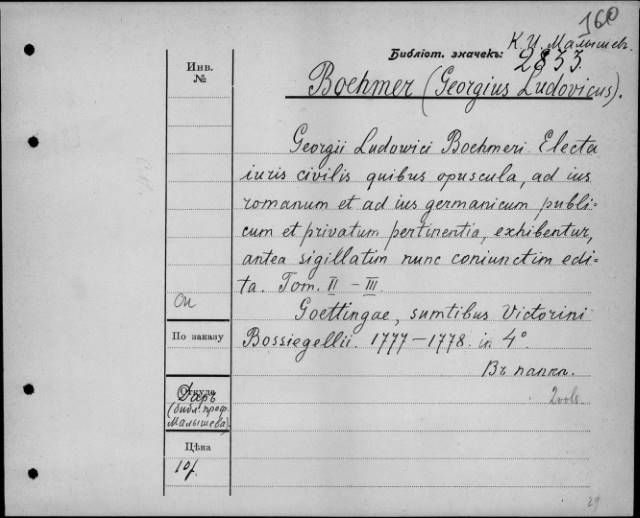 160
К. И. Малышев.
Библiот. значекъ: 2833.
Инв.
№
Boehmer (Georgius Ludovicus).
Georgii Ludowici Boehmeri Electa
iuris civilis quibus opuscula, ad ius
romanum et ad ius germanicum publi-
cum et privatum pertinentia, exhibentur,
antea sigillatim nunc coniunctim edi-
ta. Tom. II – III.
Goettingae, sumtibus Victorini
Bossiegellii. 1777–1778. in 4°.
Въ папкѣ.
2 vols.
По заказу
Откуда
Даръ
(библ. проф.
Малышева)
Цѣна
10 р.
29